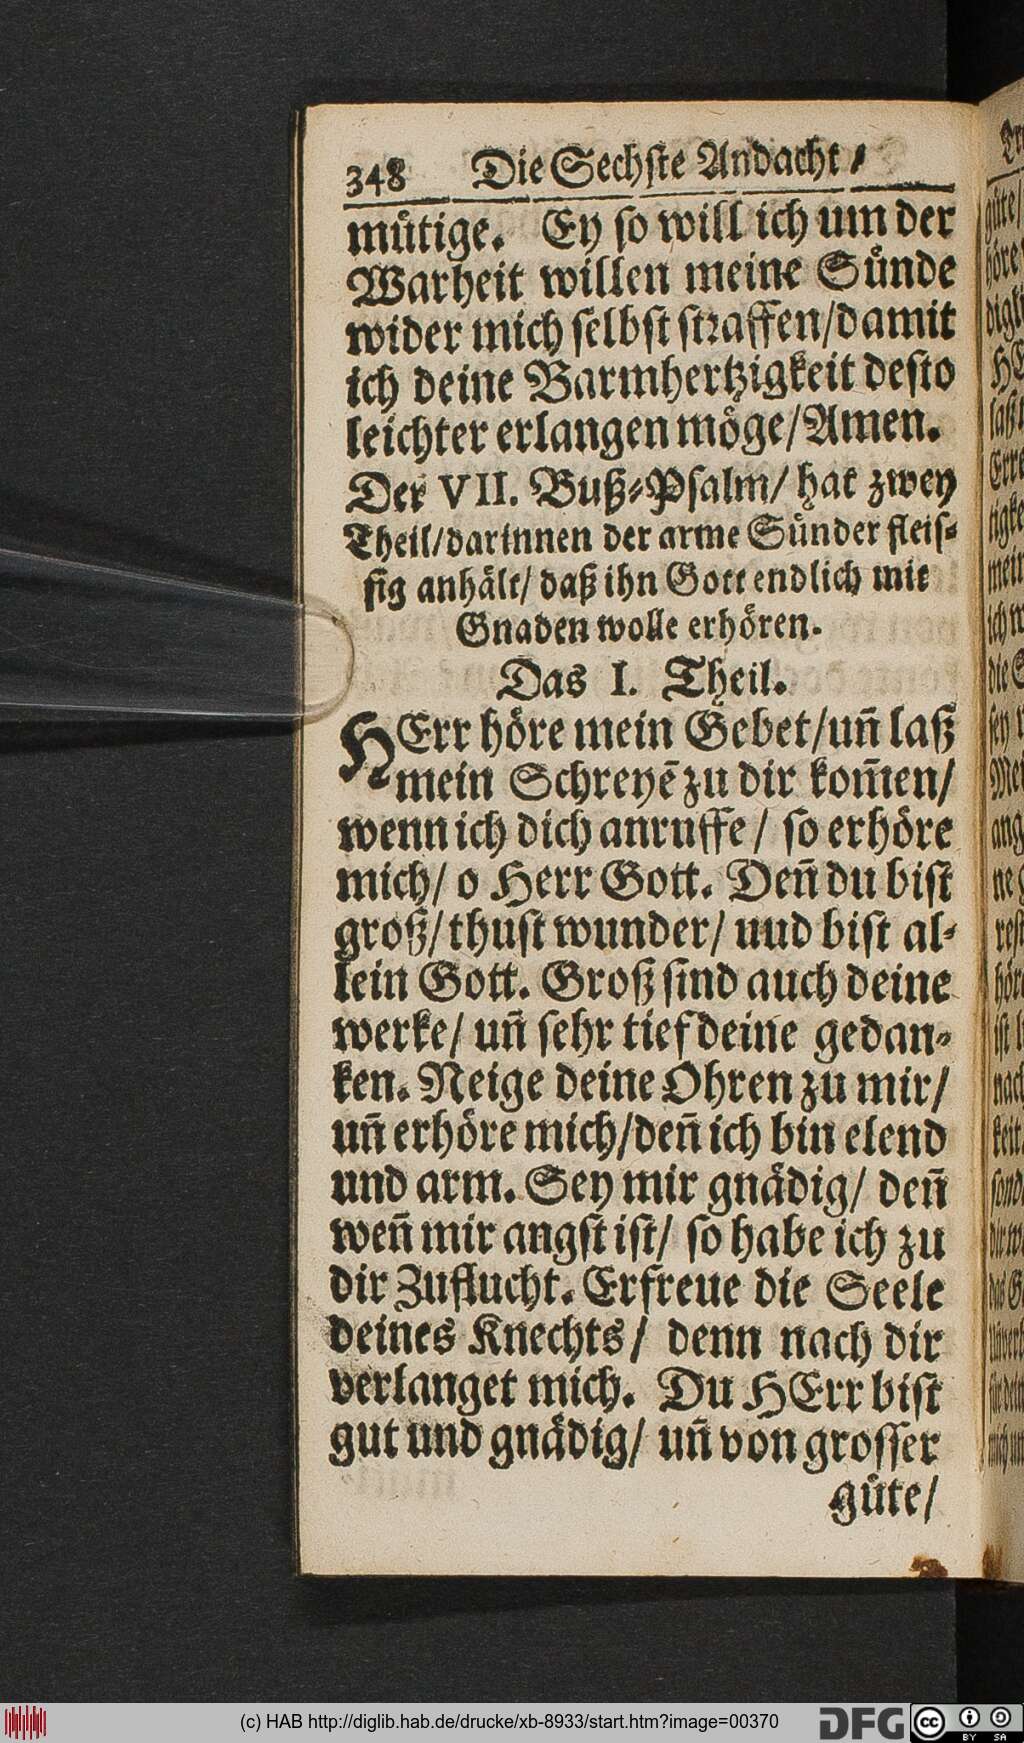 348 Die Sechste Andacht /
mütige. Ey so will ich um der
Warheit willen meine Sünde
wider mich selbst straffen/damit
ich deine Barmhertzigkeit desto
leichter erlangen möge/Amen.
Der VII. Buß-Psalm/ hat zwey
Theil/darinnen der arme Sünder fleis-
sig anhält/ daß ihn Gott endlich mit
Gnaden wolle erhören.
Das I. Theil.
HErr höre mein Gebet/uñ laß
mein Schreyē zu dir kom̃en/
wenn ich dich anruffe / so erhöre
mich/ o Herr Gott. Deñ du bist
groß/ thust wunder/ uud bist al-
lein Gott. Groß sind auch deine
werke/ uñ sehr tief deine gedan-
ken. Neige deine Ohren zu mir/
uñ erhöre mich/deñ ich bin elend
und arm. Sey mir gnädig/ deñ
weñ mir angst ist/ so habe ich zu
dir Zuflucht. Erfreue die Seele
deines Knechts/ denn nach dir
verlanget mich. Du HErr bist
gut und gnädig/ uñ von grosser
güte/
(c) HAB http://diglib.hab.de/drucke/xb-8933/start.htm?image=00370
DFG
cc BY SA